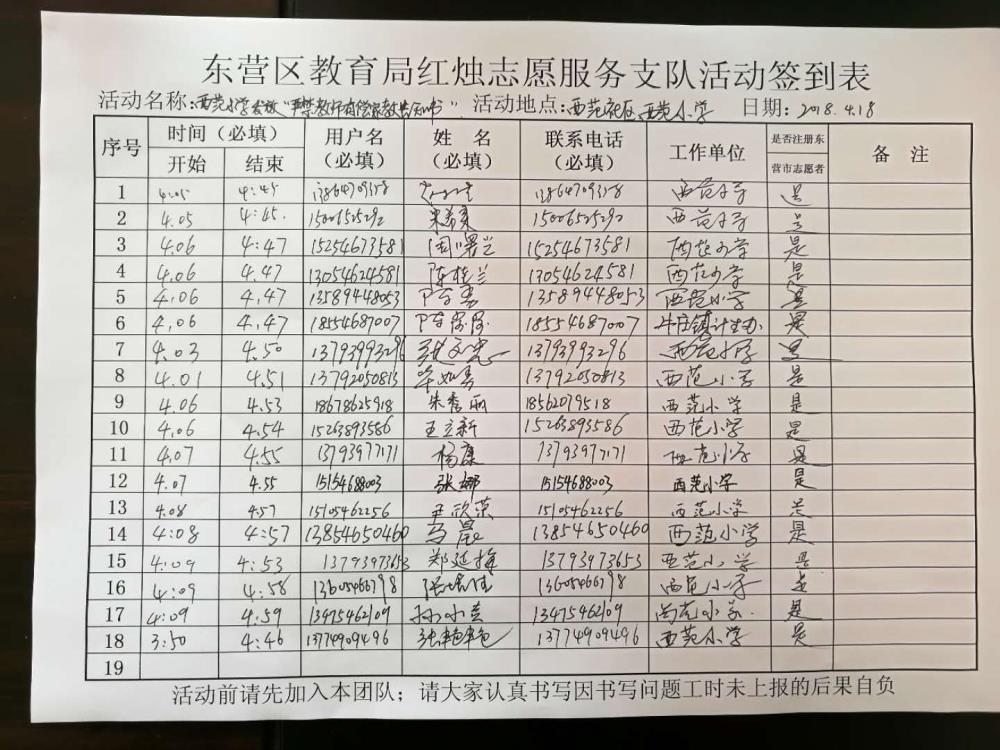 东营区教育局红烛志愿服务支队活动签到表
活动名称:西范小学发放"严禁教师有偿家教告知书" 活动地点:西范社区西范小学 日期:2018.4.18
序号 时间(必填) 用户名(必填) 姓名(必填) 联系电话(必填) 工作单位 是否注册东营市志愿者 备注
开始 结束
1 4:05 4:45 13864709358 13864709358 西范小学 是
2 4.05 4:45. 15006525292 朱希真 15006525292 西范小学 是
3 4.06 4:47 15254673581 周曙兰 15254673581 西范小学 是
4 4.06 4.47 13054624581 陈桂兰 13054624581 西范小学 是
5 4.06 4.47 13589448053 陈勇 13589448053 西范小学 是
6 4.06 4.47 18554687007 陈房房 18554687007 牛庄镇计生办 是
7 4.03 4.50 13793993296 张文忠 13793993296 西范小学 是
8 4.01 4.51 13792050813 13792050813 西范小学 是
9 4.06 4.53 18678625918 朱秀丽 18562079518 西范小学 是
10 4.06 4.54 15263893586 王立新 15263893586 西范小学 是
11 4.07 4.55 13793977171 杨康 13793977171 西范小学 是
12 4.07 4.55 15154688003 张娜 15154688003 西范小学 是
13 4.08 4.57 15105462256 王欣荣 15105462256 西范小学 是
14 4:08 4:57 13854650460 马晨 13854650460 西范小学 是
15 4:09 4:53 13793973653 郑延梅 13793973653 西范小学 是
16 4:09 4:58 13605466798 13605466798 西范小学 是
17 4:09 4:59 13475462109 孙小真 13475462109 西范小学. 是
18 3:50 4:46 13774909496 张艳艳 13774909496 西范小学 是
19
活动前请先加入本团队;请大家认真书写因书写问题工时未上报的后果自负